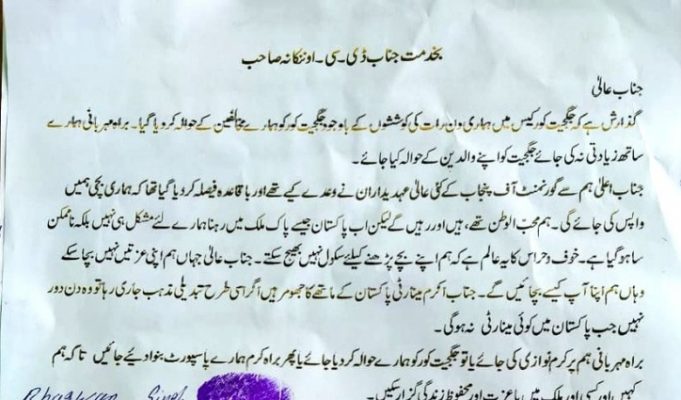 بخدمت جناب ڈی۔سی۔او ننکانہ صاحب
جناب عالیٰ
گذارش ہے کہ جگجیت کور کیس میں ہماری دن رات کی کوششوں کے باوجود جگجیت کور کو ہمارے مخالفین کے حوالہ کردیا گیا۔ براہ مہربانی ہمارے
ساتھ زیادتی نہ کی جائے جگجیت کو اپنے والدین کے حوالہ کیا جائے۔
جناب اعلیٰ ہم سے گورنمنٹ آف پنجاب کے کئی عالیٰ عہدیداران نے وعدے کیے تھے اور باقاعدہ فیصلہ کردیا گیا تھا کہ ہماری بچی ہمیں
واپس کی جائے گی۔ ہم محب الوطن تھے، ہیں اور رہیں گے لیکن اب پاکستان جیسے پاک ملک میں رہنا ہمارے لئے مشکل ہی نہیں بلکہ ناممکن
سا ہوگیا ہے۔ خوف وحراس کا یہ عالم ہے کہ ہم اپنے بچے پڑھنے کیلئے سکول نہیں بھیج سکتے۔ جناب عالیٰ جہاں ہم اپنی عزتیں نہیں بچا سکے
وہاں ہم اپنا آپ کیسے بچائیں گے۔ جناب اکرم مینارٹی پاکستان کے ماتھے کا جھومر ہیں اگر اسی طرح تبدیلی مذہب جاری رہا تو وہ دن دور
نہیں جب پاکستان میں کوئی مینارٹی نہ ہوگی۔
براہ مہربانی ہم پر کرم نوازی کی جائے یا تو جگجیت کور کو ہمارے حوالہ کردیا جائے یا پھر براہ کرم ہمارے پاسپورٹ بنوا دیئے جائیں تاکہ ہم
کہیں اور کسی اور ملک میں با عزت اور محفوظ زندگی گزار سکیں۔
Bhagwan Singh